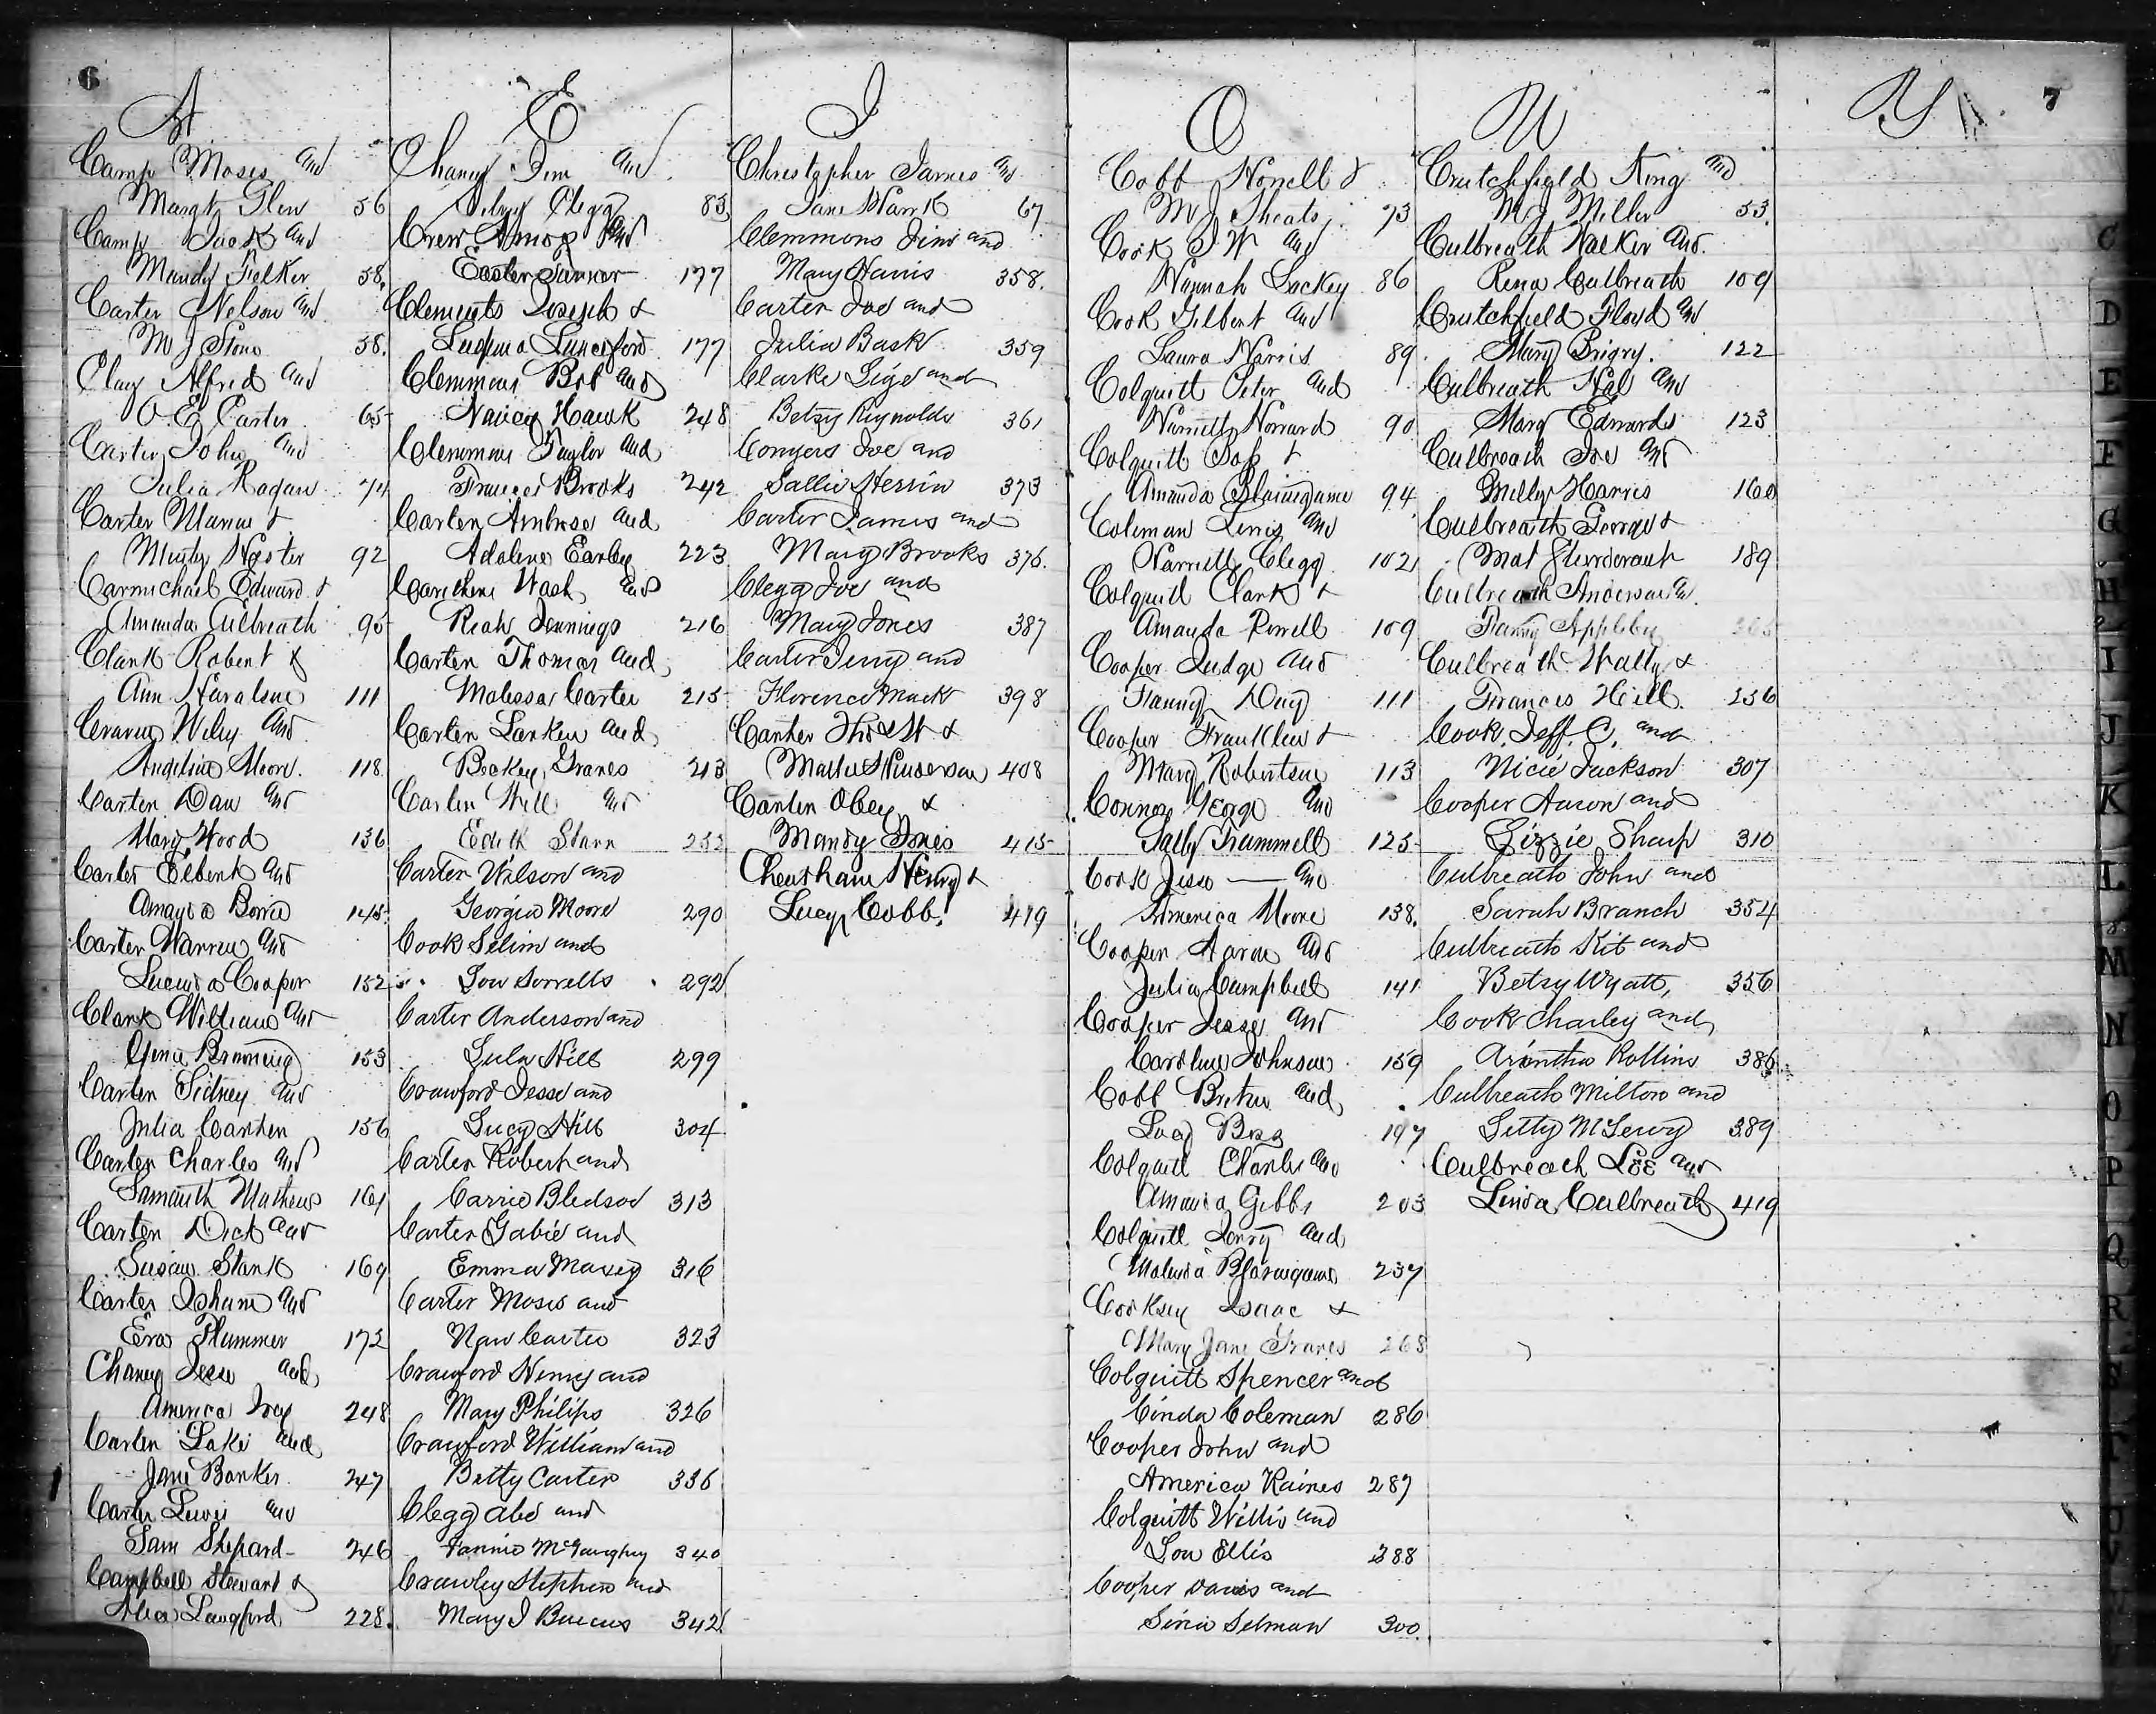 6
A
Camp Moses and
Margt Glen 56
Camp Jack and
Mandy Felker 58.
Carter Nelson and
M J Stone 58.
Clay Alfred and
O. E. Carter 65
Carter John and
Julia Ragan 74
Carter Manus &
Minty Hester 92
Carmichael Edward &
Amanda Culbreath 95
Clark Robert &
Ann Haralson 111
Craven Wiley and
Angeline Moore. 118
Carter Dan and
Mary Wood 136
Carter Elbert and
145
Carter Warren and
Lucinda Cooper 152
Clark William and
Browning 153
Carter Sidney and
Julia Carter 156
Carter Charles and
Samanth Mathews 161
Carter Dick and
Susan Stark 169
Carter Isham and
Eva Plummer 172
Chaney Jesse and
America Ivey 248
Carter Jake and
Jane Barker 247
Carter Lewis and
Sam Shepard 246
Campbell Stewart &
Langford 228.
E
Chaney Jim and
Clegg 83
Crew Amos and
Easter 177
Clements Joseph &
Lunceford 177
Clemmons Bob and
Nancy Hawk 248
Clemmons Taylor and
Frances Brooks 242
Carter Ambrose and
Adaline Earley 223
Wash and
Jennings 216
Carter Thomas and
Malissa Carter 215
Carter Larkin and
Beckey Graves 213
Carter Will and
Edith Starr 252
Carter Wilson and
Georgia Moore 290
Cook Selim and
Lou Sorrells 292
Carter Anderson and
Lula Hill 299
Crawford Jesse and
Lucy Hill 304
Carter Robert and
Carrie Bledsoe 313
Carter Gabie and
Emma Maxey 316
Carter Moses and
Nan Carter 323
Crawford Henry and
Mary Philips 326
Crawford William and
Betty Carter 336
Clegg Abe and
Fannie McGaughey 340
Crawley Stephen and
Mary J 342
I
Christopher James and
Jane Stark 67
Clemmons Jim and
Mary Harris 358.
Carter Joe and
Julia Bask 359
Clarke Lige and
Betsy Reynolds 361
Conyers Joe and
Sallie Herrin 373
Carter James and
Mary Brooks 376.
Clegg Joe and
Mary Jones 387
Carter Jerry and
Florence Mack 398
Carter Thos W &
Henderson 408
Carter Obey &
Mandy Jones 415
Cheatham Henry &
Lucy Cobb. 419
O
Cobb Howell &
M J Sheats 73
Cook J W and
Hannah Lackey 86
Cook Gilbert and
Laura Harris 89
Colquitt Peter and
Howard 90
Colquitt &
Amanda Blasingame 94
Coleman Lewis and
Harriett Clegg 102
Colquitt Clark &
Amanda Powell 109
Cooper Judge and
Fanny Day 111
Cooper Franklin &
Mary Robertson 113
Conner George and
Sally Trammell 125
Cook Jesse — and
America Moore 138.
Cooper Aaron and
Julia Campbell 141
Cooper Jesse and
Caroline Johnson 159
Cobb and
197
Colquitt Charles and
Amanda Gibbs 203
Colquitt and
Malinda Blasingame 237
Cooksey Isaac &
Mary Jane Graves 268
Colquitt Spencer and
Cinda Coleman 286
Cooper John and
America Raines 287
Colquitt Willis and
Lou Ellis 288
Cooper Davis and
Selman 300.
U
Crutchfield King and
M. J. Miller 53.
Culbreath Walker and.
Rena Culbreath 109
Crutchfield Floyd and
Mary 122
Culbreath Hal and
Mary Edwards 123
Culbreath Joe and
Milly Harris 160
Culbreath George &
Mat Sturdevant 189
Culbreath Anderson &
Fanny Appleby
Culbreath Wally &
Frances Hill. 256
Cook, Jeff. C. and
Nicie Jackson 307
Cooper Aaron and
Lizzie Sharp 310
Culbreath John and
Sarah Branch 354
Culbreath Kit and
Betsy Wyatt, 356
Cook Charley and
Arintha Rollins 386
Culbreath Milton and
389
Culbreath Lee and
Linda Culbreath 419
Y
7
C
D
E
F
G
H
I
J
K
L
M
N
O
P
Q
R
S
T
U
V